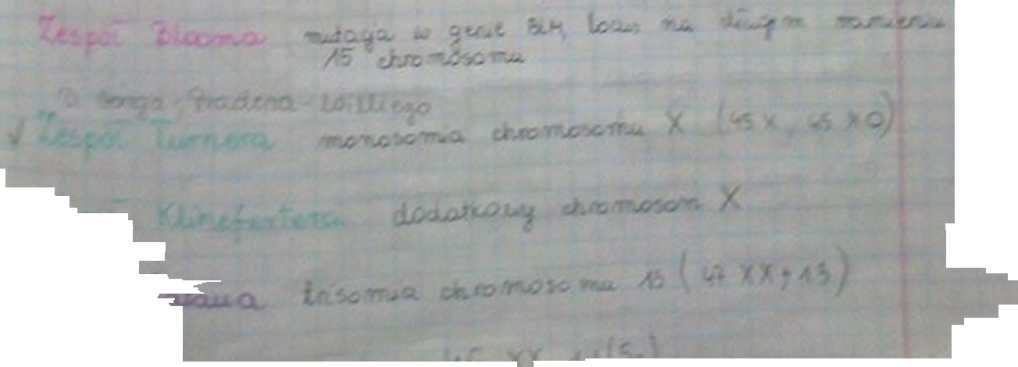 Zespół Blooma mutacja w genie BLM, locus na długim ramieniu
15 chromosomu
Zespół Turnera monosomia chromosomu X (45 X, 45 X0)
Klinefeltera dodatkowy chromosom X
trisomia chromosomu 13 (47 XX, +13)